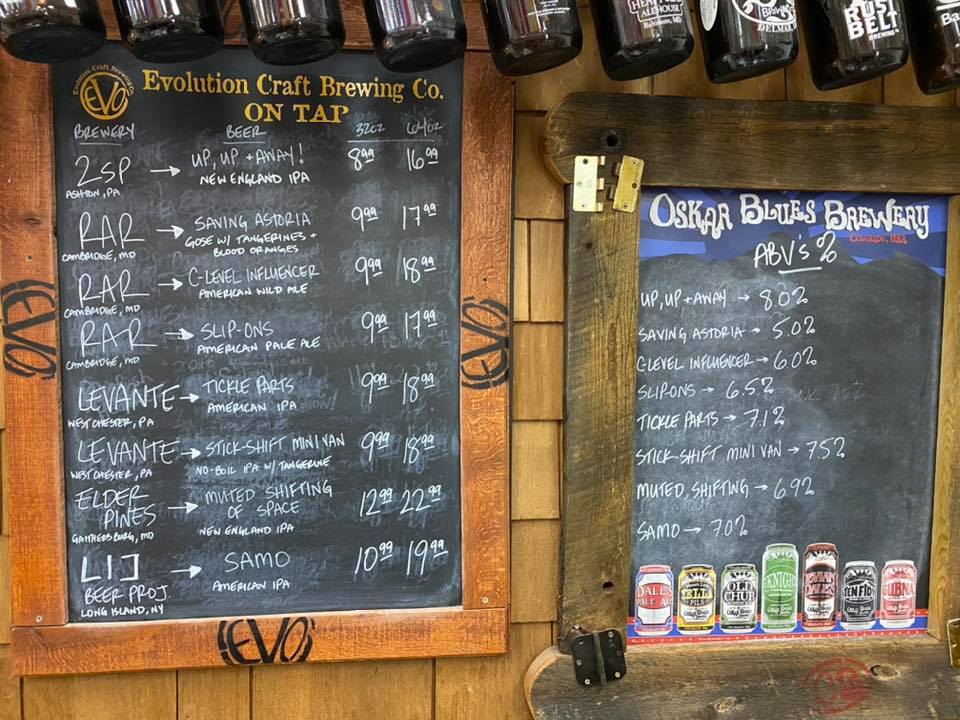 HEAVY SEAS
ALEHOUSE
Baltimore, MD
BREWING
DELMAR
RUST
BELT
BREWING CO
Evolution Craft Brewing Co.
EVO
Evolution Craft Brewing Co.
ON TAP
BREWERY BEER 32oz 64oz
2SP → UP, UP + AWAY! 8.99 16.99
ASHTON, PA NEW ENGLAND IPA
RAR → SAVING ASTORIA 9.99 17.99
CAMBRIDGE, MD GOSE W/ TANGERINES +
BLOOD ORANGES
RAR → C-LEVEL INFLUENCER 9.99 18.99
CAMBRIDGE, MD AMERICAN WILD ALE
RAR → SLIP-ONS 9.99 17.99
CAMBRIDGE, MD AMERICAN PALE ALE
LEVANTE → TICKLE PARTS 9.99 18.99
WEST CHESTER, PA AMERICAN IPA
LEVANTE → STICK-SHIFT MINI VAN 9.99 18.99
WEST CHESTER, PA NO-BOIL IPA W/ TANGERINE
ELDER PINES → MUTED SHIFTING OF SPACE 12.99 22.99
GAITHERSBURG, MD NEW ENGLAND IPA
LIJ → SAMO 10.99 19.99
BEER PROJ. AMERICAN IPA
LONG ISLAND, NY
EVO
EVO
EVO
OSKAR BLUES BREWERY
ABV's %
UP, UP + AWAY → 8.0%
SAVING ASTORIA → 5.0%
C-LEVEL INFLUENCER → 6.0%
SLIP-ONS → 6.5%
TICKLE PARTS → 7.1%
STICK-SHIFT MINI VAN → 7.5%
MUTED, SHIFTING → 6.9%
SAMO → 7.0%
DALE'S
PALE ALE
PILS
OLD
CHUB